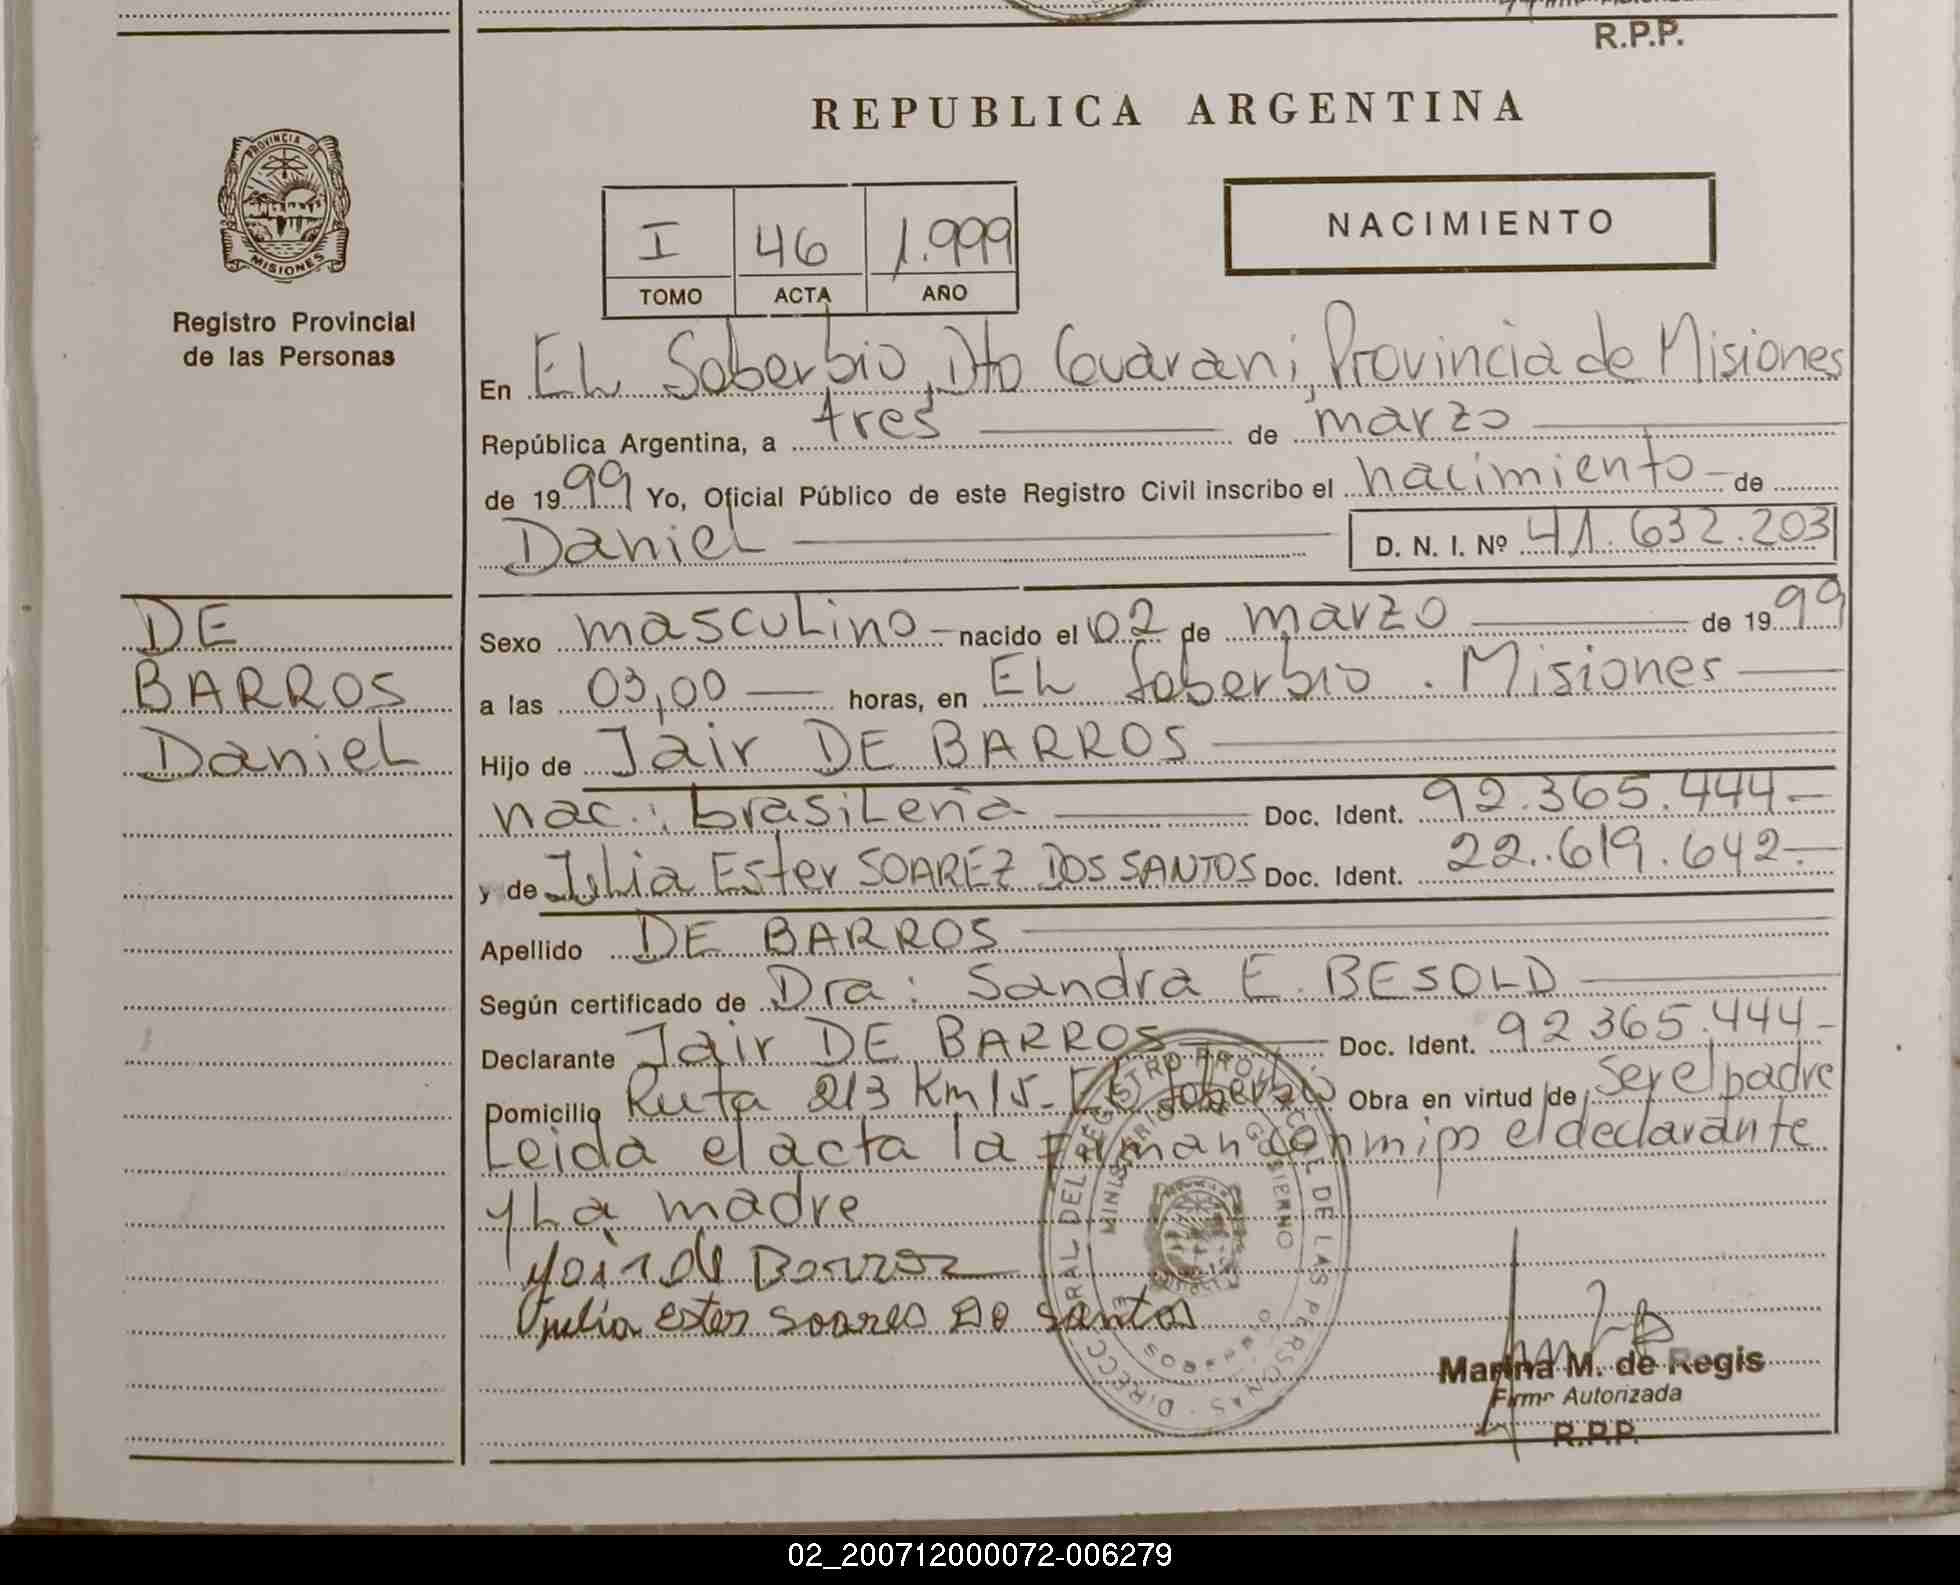 R.P.P.
REPUBLICA ARGENTINA
PROVINCIA DE
MISIONES
Registro Provincial
de las Personas
I 46 1.999
TOMO ACTA AÑO
NACIMIENTO
En EL Soberbio, Dto Guarani, Provincia de Misiones
República Argentina, a tres de marzo
de 1999 Yo, Oficial Público de este Registro Civil inscribo el nacimiento de
Daniel D. N. I. Nº 41.632.203
DE
BARROS
Daniel
Sexo masculino nacido el 02 de marzo de 1999
a las 03,00 horas, en EL Soberbio. Misiones
Hijo de Jair DE BARROS
nac.: brasileña Doc. Ident. 92.365.444
y de Julia Ester SOAREZ DOS SANTOS Doc. Ident. 22.619.642
Apellido DE BARROS
Según certificado de Dra: Sandra E. BESOLD
Declarante Jair DE BARROS Doc. Ident. 92 365.444
Domicilio Ruta 213 Km 15 - EL Soberbio Obra en virtud de ser el padre
Leida el acta la firman conmigo el declarante
y La madre
Jair de Barros
Julia Ester Soares Do Santos
Marina M. de Regis
Firma Autorizada
R.P.P.
02_200712000072-006279